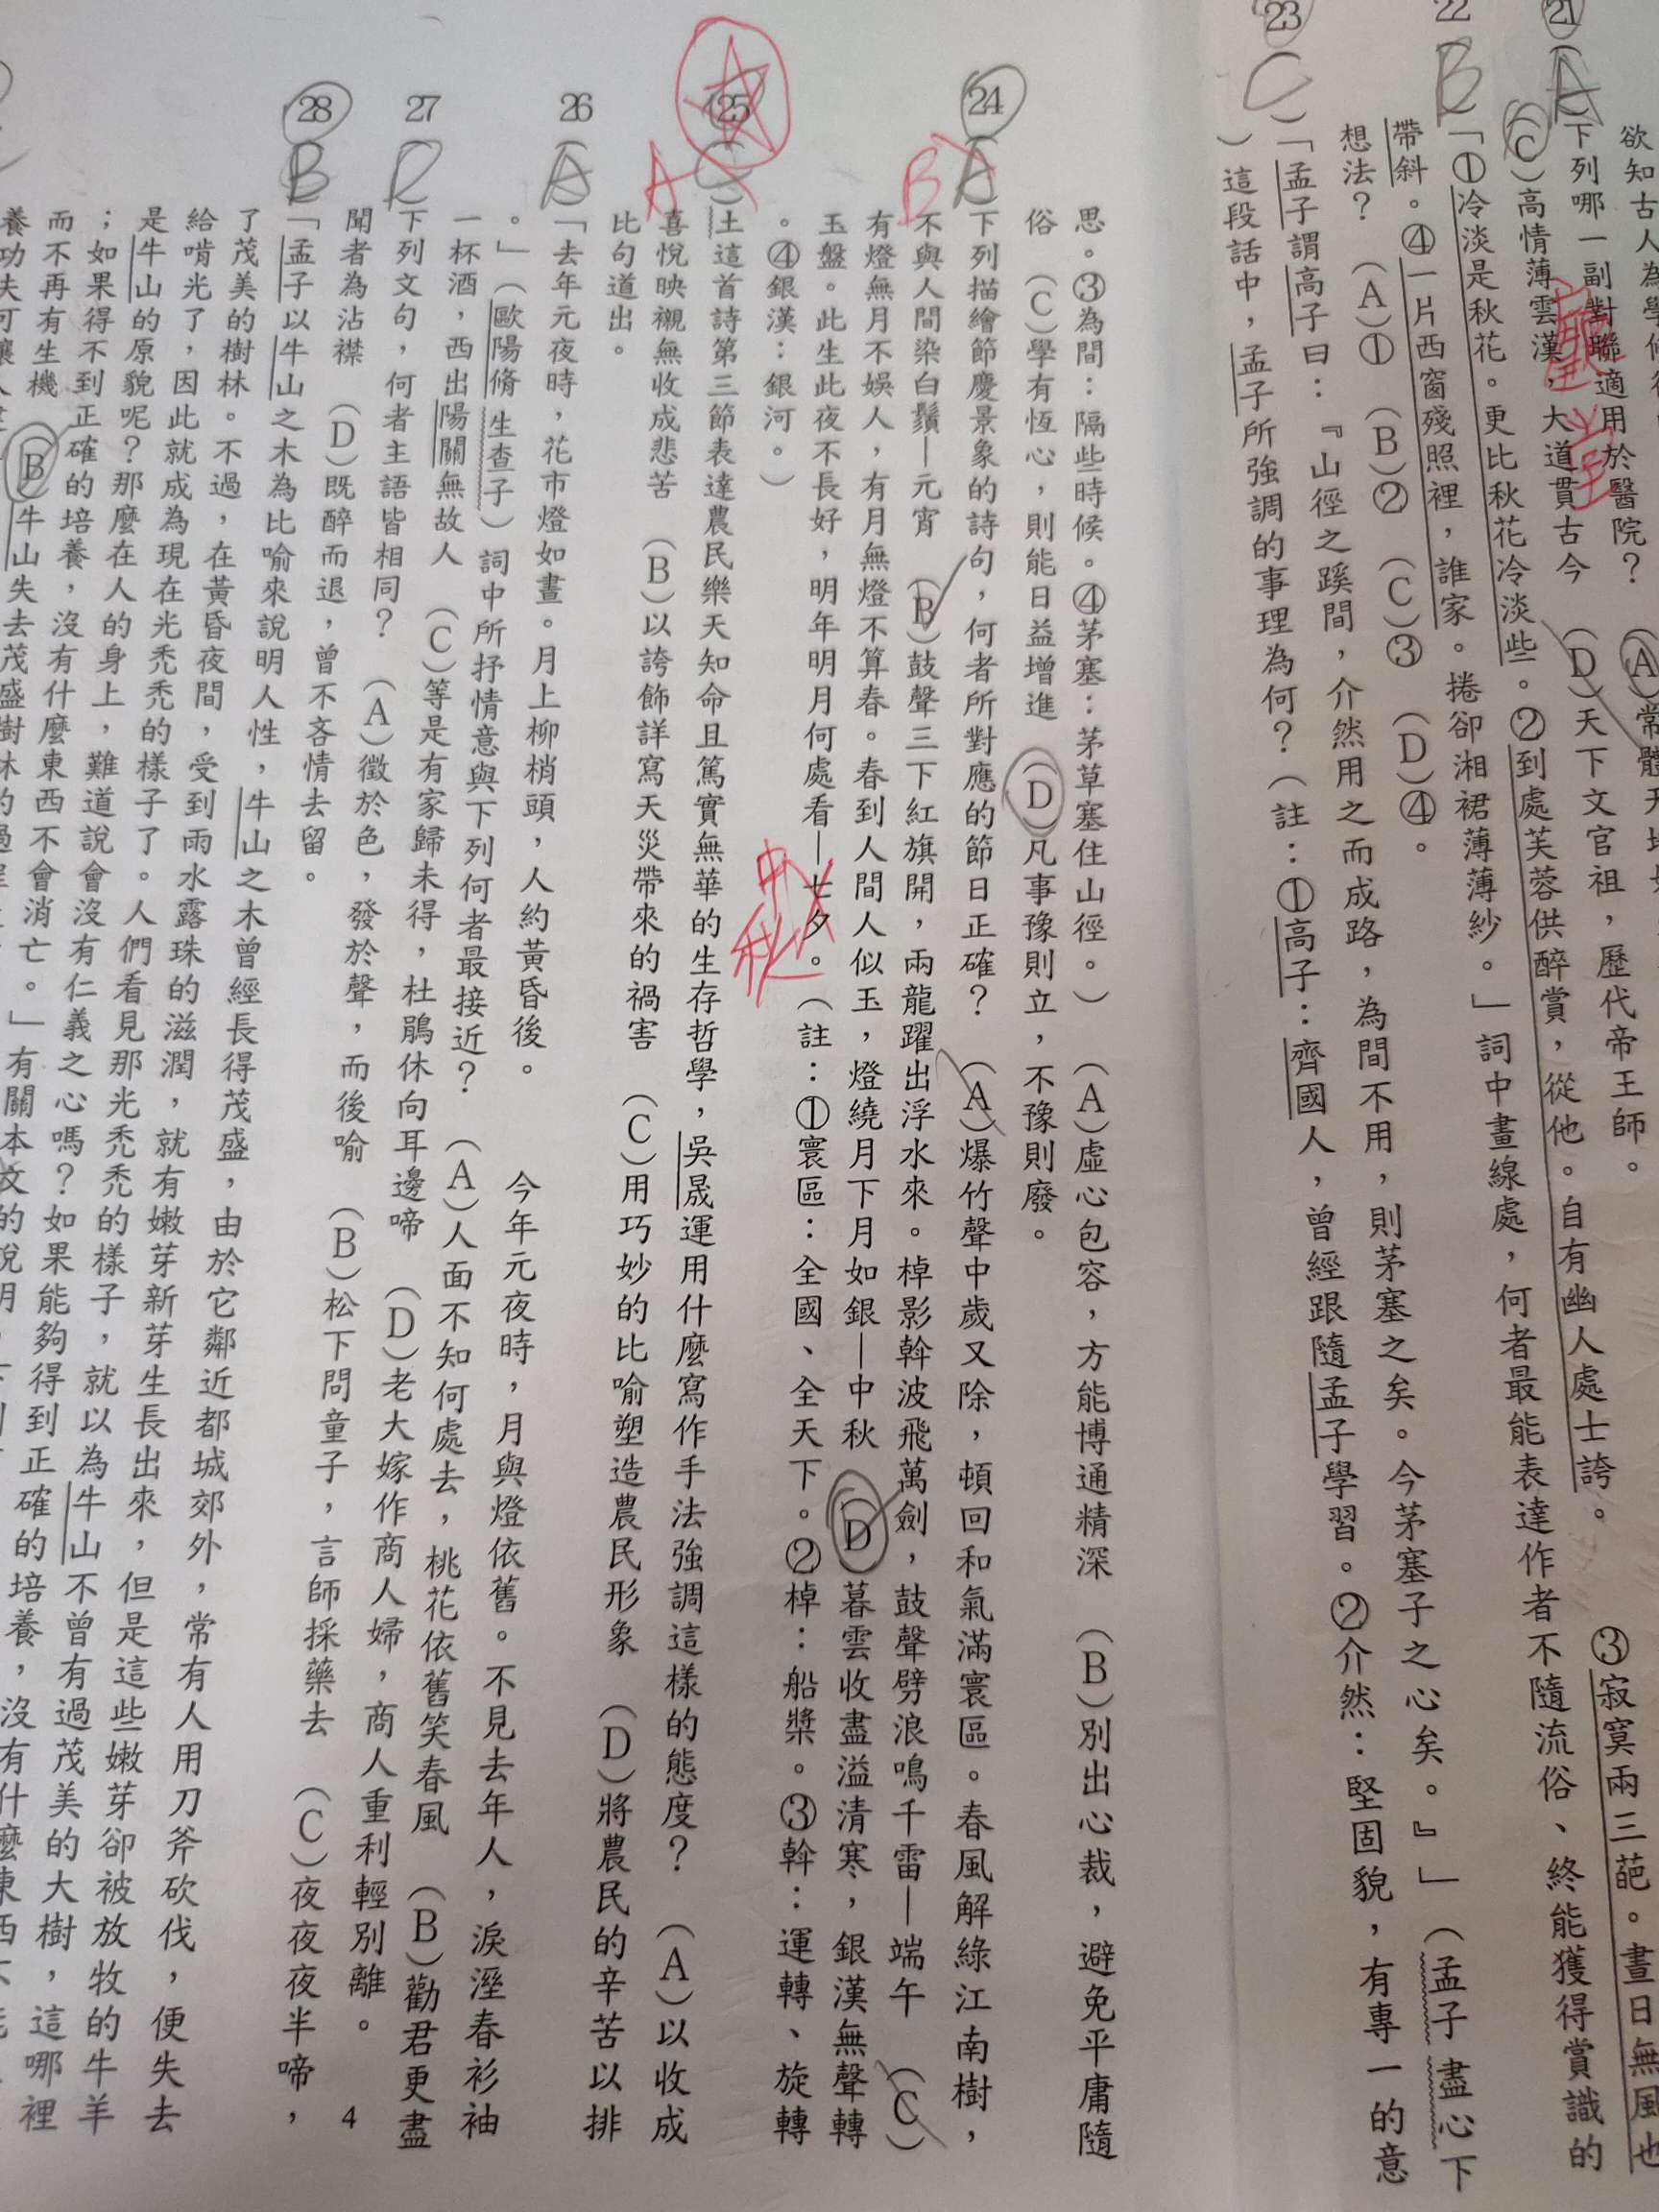 欲知古人為學
21
A
下列哪一副對聯適用於醫院？
(A)常
(C)高情薄雲漢，大道貫古今
(D)天下文官祖，歷代帝王師。
22
B
「①冷淡是秋花。更比秋花冷淡些。②到處芙蓉供醉賞，從他。自有幽人處士誇。
③寂寞兩三葩。晝日無風也
帶斜。④一片西窗殘照裡，誰家。捲卻湘裙薄薄紗。」詞中畫線處，何者最能表達作者不隨流俗、終能獲得賞識的
想法？　(A)①　(B)②　(C)③　(D)④。
23
C
「孟子謂高子曰：『山徑之蹊間，介然用之而成路，為間不用，則茅塞之矣。今茅塞子之心矣。』」（孟子盡心下
）這段話中，孟子所強調的事理為何？（註：①高子：齊國人，曾經跟隨孟子學習。②介然：堅固貌，有專一的意
思。③為間：隔些時候。④茅塞：茅草塞住山徑。）　(A)虛心包容，方能博通精深　(B)別出心裁，避免平庸隨
俗　(C)學有恆心，則能日益增進　(D)凡事豫則立，不豫則廢。
24
B
下列描繪節慶景象的詩句，何者所對應的節日正確？　(A)爆竹聲中歲又除，頓回和氣滿寰區。春風解綠江南樹，
不與人間染白鬚—元宵　(B)鼓聲三下紅旗開，兩龍躍出浮水來。棹影斡波飛萬劍，鼓聲劈浪鳴千雷—端午　(C)
有燈無月不娛人，有月無燈不算春。春到人間人似玉，燈繞月下月如銀—中秋　(D)暮雲收盡溢清寒，銀漢無聲轉
玉盤。此生此夜不長好，明年明月何處看—七夕。（註：①寰區：全國、全天下。②棹：船槳。③斡：運轉、旋轉
中秋
。④銀漢：銀河。）
25
A
土這首詩第三節表達農民樂天知命且篤實無華的生存哲學，吳晟運用什麼寫作手法強調這樣的態度？　(A)以收成
喜悅映襯無收成悲苦　(B)以誇飾詳寫天災帶來的禍害　(C)用巧妙的比喻塑造農民形象　(D)將農民的辛苦以排
比句道出。
26
A
「去年元夜時，花市燈如晝。月上柳梢頭，人約黃昏後。　今年元夜時，月與燈依舊。不見去年人，淚溼春衫袖
。」（歐陽脩 生查子）詞中所抒情意與下列何者最接近？　(A)人面不知何處去，桃花依舊笑春風　(B)勸君更盡
一杯酒，西出陽關無故人　(C)等是有家歸未得，杜鵑休向耳邊啼　(D)老大嫁作商人婦，商人重利輕別離。
27
下列文句，何者主語皆相同？　(A)徵於色，發於聲，而後喻　(B)松下問童子，言師採藥去　(C)夜夜夜半啼，
聞者為沾襟　(D)既醉而退，曾不吝情去留。
28
B
「孟子以牛山之木為比喻來說明人性，牛山之木曾經長得茂盛，由於它鄰近都城郊外，常有人用刀斧砍伐，便失去
了茂美的樹林。不過，在黃昏夜間，受到雨水露珠的滋潤，就有嫩芽新芽生長出來，但是這些嫩芽卻被放牧的牛羊
給啃光了，因此就成為現在光禿禿的樣子了。人們看見那光禿禿的樣子，就以為牛山不曾有過茂美的大樹，這哪裡
是牛山的原貌呢？那麼在人的身上，難道說會沒有仁義之心嗎？如果能夠得到正確的培養，沒有什麼東西不
；如果得不到正確的培養，沒有什麼東西不會消亡。」有關本文的說明，下列
而不再有生機　(B)牛山失去茂盛樹林的過程
4